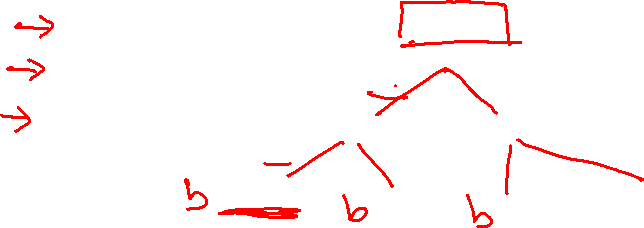 →
→
→
b b b